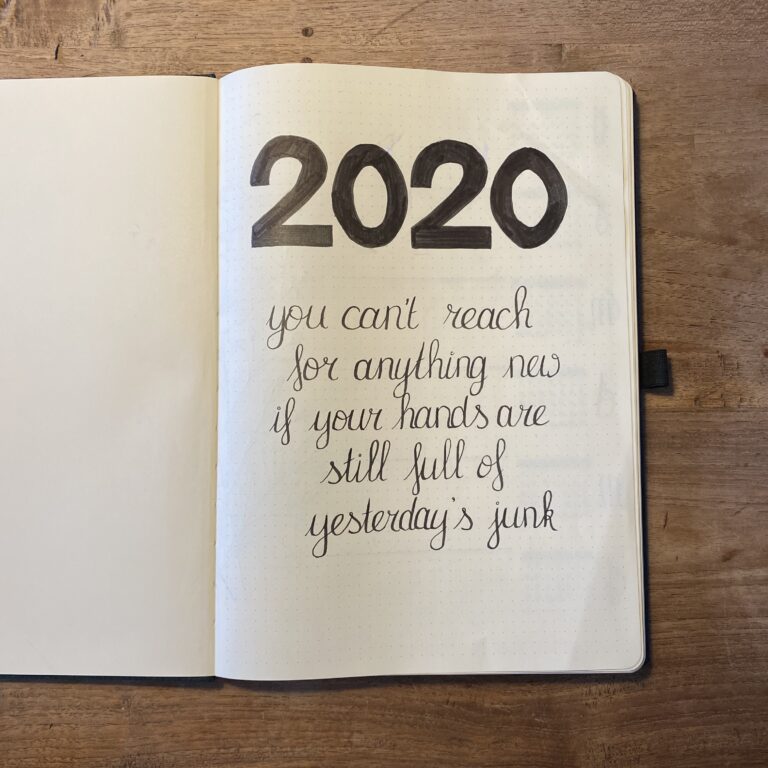 2020
you can't reach
for anything new
if your hands are
still full of
yesterday's junk